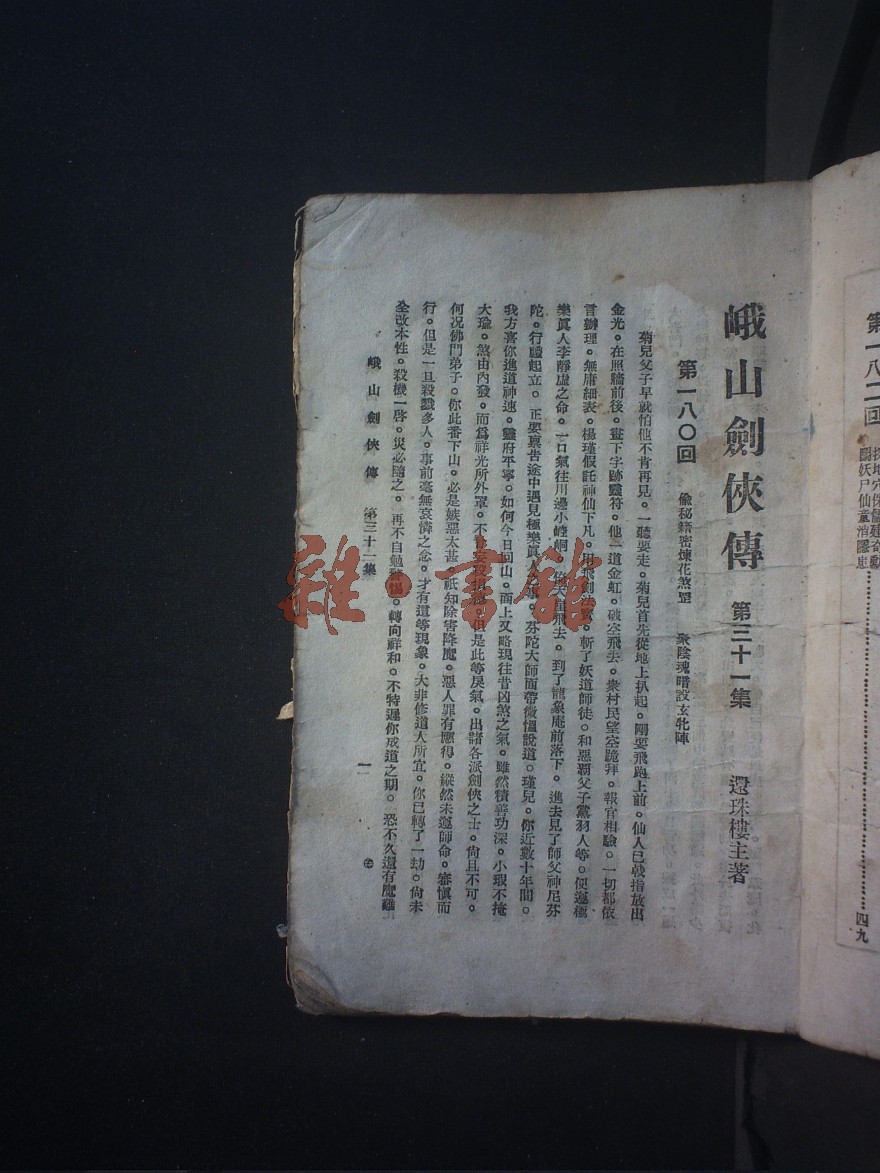 第一八二回
鬪妖尸仙童消隱患
四九
峨山劍俠傳 第三十一集 還珠樓主著
第一八〇回 偷秘籍密煉花煞罡 衆陰魂暗設玄牝陣
菊兒父子早就怕他不肯再見。一聽要走。菊兒首先從地上扒起。剛要飛跑上前。仙人已戟指放出
金光。在照牆前後。畫下字跡靈符。他一道金虹。破空飛去。衆村民望空跪拜。報官相驗。一切都依
言辦理。無庸細表。楊瑾假託神仙下凡。用飛劍法寶。斬了妖道師徒。和惡霸父子黨羽人等。便遵極
樂眞人李靜虛之命。一口氣往川邊小崆峒 飛去。到了龍象庵前落下。進去見了師父神尼芬
陀。行禮起立。正要禀告途中遇見極樂眞人之事。芬陀大師面帶微慍說道。瑾兒。你近數十年間。
我方喜你進道神速。靈府平寧。如何今日回山。面上又略現往昔凶煞之氣。雖然積善功深。小瑕不掩
大瑜。煞由內發。而爲祥光所外罩。不 但是此等戾氣。出諸各派劍俠之士。尙且不可。
何況佛門弟子。你此番下山。必是嫉惡太甚。祇知除害降魔。惡人罪有應得。縱然未違師命。審愼而
行。但是一旦殺戮多人。事前毫無哀憐之念。才有這等現象。大非修道人所宜。你已轉了一劫。尙未
全改本性。殺機一啓。災必隨之。再不自勉警惕。轉向祥和。不特遲你成道之期。恐不久還有魔難
峨山劍俠傳 第三十一集 一
雜·書館